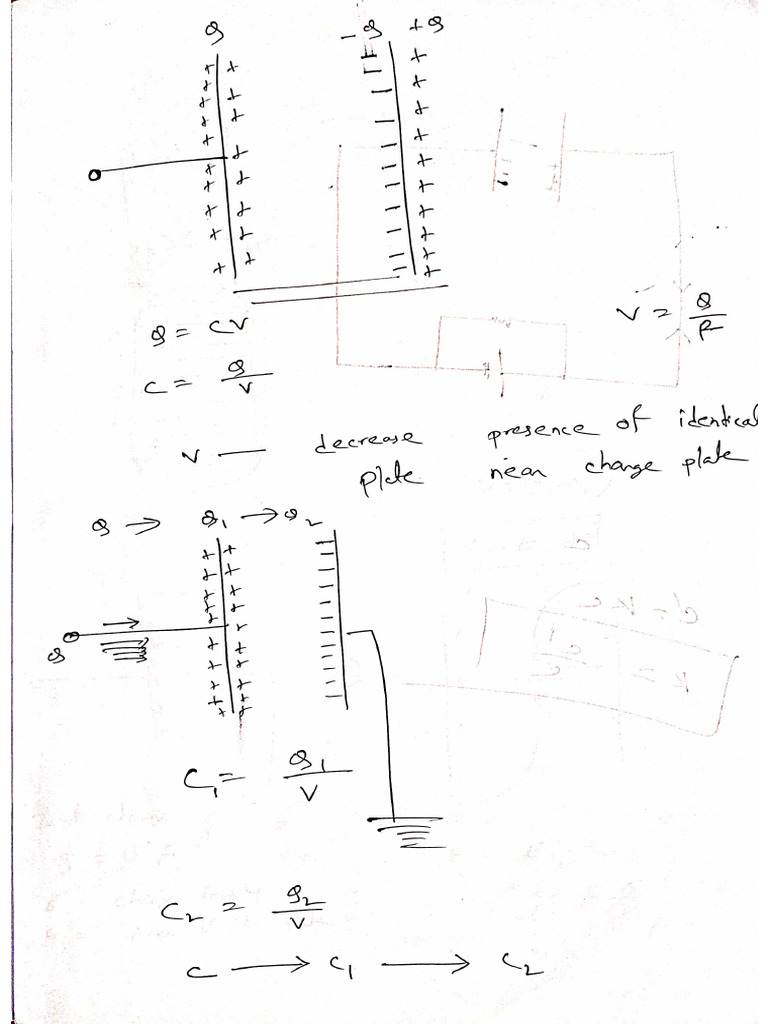 Q - Q + Q
Q = CV
C = Q/V
V = Q/R
V — decrease presence of identical
plate near charge plate
Q → Q₁ → Q₂
Q
C₁ = Q₁/V
C₂ = Q₂/V
C → C₁ → C₂